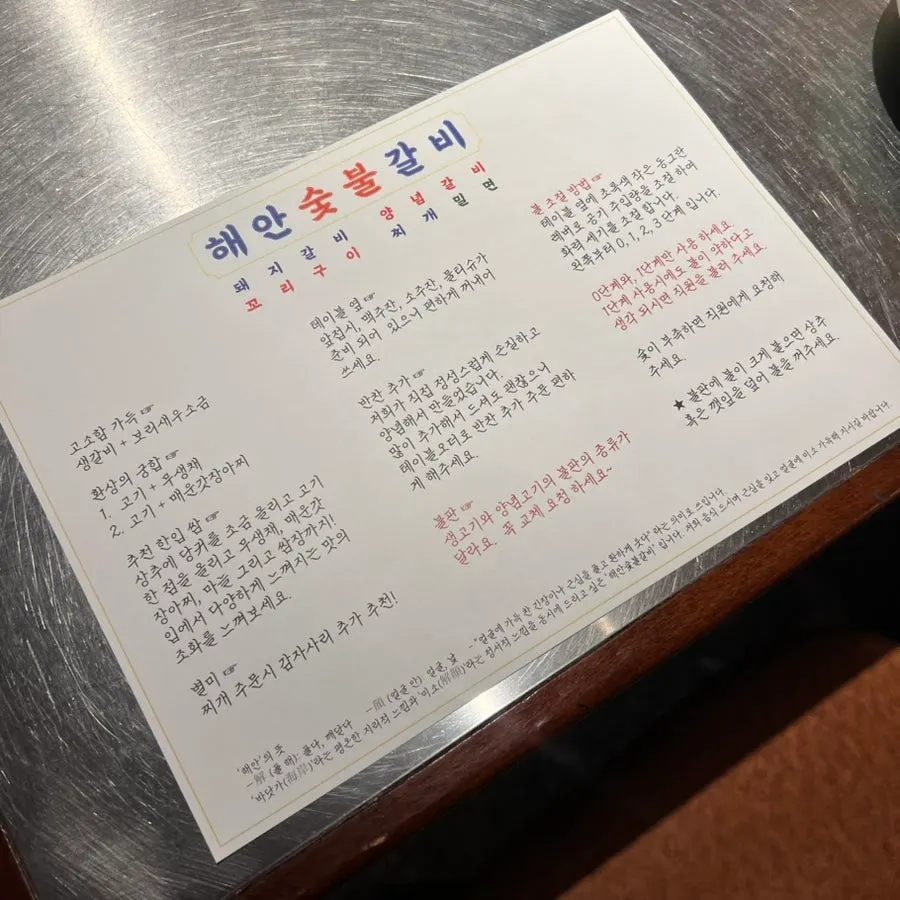 해안숯불갈비
돼지갈비 양념갈비
꼬리구이 찌개 밀면
고소함 가득 ☞
생갈비 + 보리새우소금
환상의 궁합 ☞
1. 고기 + 무생채
2. 고기 + 매운갓장아찌
추천 한입 쌈 ☞
상추에 당귀를 조금 올리고 고기
한 점을 올리고 무생채, 매운갓
장아찌, 마늘 그리고 쌈장까지!
입에서 다양하게 느껴지는 맛의
조화를 느껴보세요.
별미 ☞
찌개 주문시 감자사리 추가 추천!
테이블 옆 ☞
앞접시, 맥주잔, 소주잔, 물티슈가
준비 되어 있으니 편하게 꺼내어
쓰세요.
반찬 추가 ☞
저희가 직접 정성스럽게 손질하고
양념해서 만들었습니다.
많이 추가해서 드셔도 괜찮으니
테이블오더로 반찬 추가 주문 편하
게 해주세요.
불판 ☞
생고기와 양념고기의 불판의 종류가
달라요. 꼭 교체 요청 하세요~
불 조절 방법 ☞
테이블 옆에 초록색 작은 동그란
레버로 공기 주입량을 조절 하여
화력 세기를 조절 합니다.
왼쪽부터 0, 1, 2, 3 단계 입니다.
0단계와, 1단계만 사용 하세요
1단계 사용시에도 불이 약하다고
생각 되시면 직원을 불러 주세요.
숯이 부족하면 직원에게 요청해
주세요.
★ 불판에 불이 크게 붙으면 상추
혹은 깻잎을 덮어 불을 꺼주세요.
'해안'의 뜻
-解 (풀 해): 풀다, 깨닫다 -顔 (얼굴 안): 얼굴, 낯 -"얼굴에 가득 찬 긴장이나 근심을 풀고 환하게 웃다" 라는 의미로 쓰입니다.
'바닷가(海岸)'라는 평온한 지리적 느낌과 '미소(解顔)'라는 정서적 느낌을 동시에 드리고 싶은 '해안숯불갈비' 입니다. 저희 음식 드시며 근심을 잊고 얼굴에 미소 가득해 지시길 바랍니다.